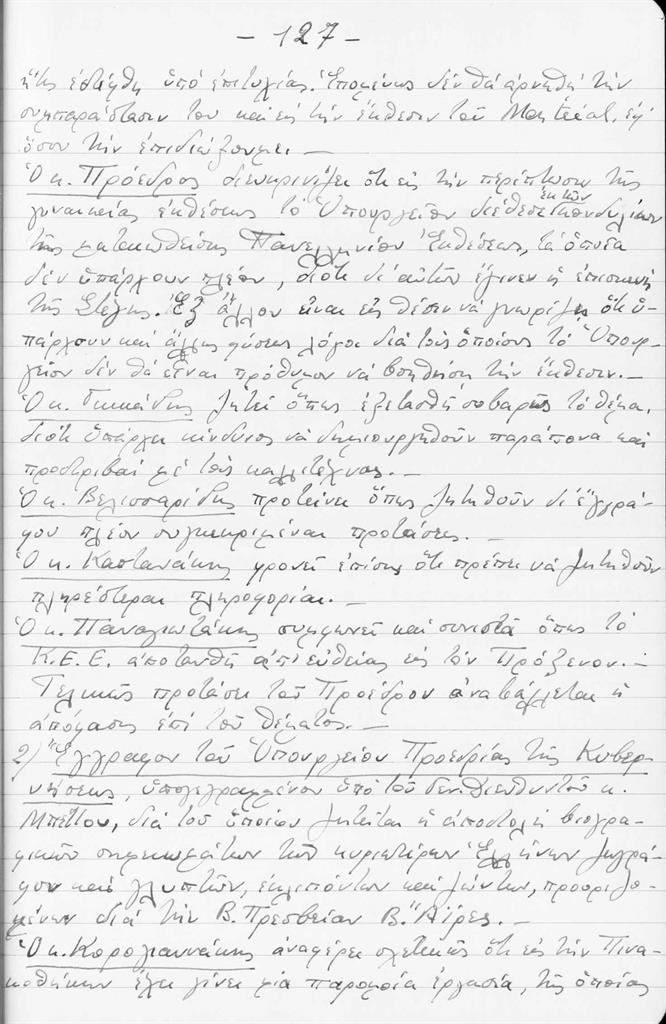 - 127 -
ἥτις ἐστέφθη ὑπό ἐπιτυχίας. Ἑπομένως δέν θά ἀρνηθῇ τήν
συμπαράστασιν του καί εἰς τήν ἔκθεσιν τοῦ Montréal, ἐφ'
ὅσον τήν ἐπιδιώξουμε. -
Ὁ κ. Πρόεδρος διευκρινίζει ὅτι εἰς τήν περίπτωσιν τῆς
γυναικείας ἐκθέσεως τό Ὑπουργεῖον διέθεσε ἐκ τῶν κονδυλίων
τῆς ματαιωθείσης Πανελληνίου Ἐκθέσεως, τά ὁποῖα
δέν ὑπάρχουν πλέον, διότι δι' αὐτῶν ἔγινεν ἡ ἐπισκευή
τῆς Στέγης. Ἐξ ἄλλου εἶναι εἰς θέσιν νά γνωρίζῃ ὅτι ὑ-
πάρχουν καί ἄλλης φύσεως λόγοι διά τούς ὁποίους τό Ὑπουρ-
γεῖον δέν θά εἶναι πρόθυμον νά βοηθήσῃ τήν ἔκθεσιν. -
Ὁ κ. ζητεῖ ὅπως ἐξετασθῇ σοβαρῶς τό θέμα,
διότι ὑπάρχει κίνδυνος νά δημιουργηθοῦν παράπονα καί
προστριβαί μέ τούς καλλιτέχνας. -
Ὁ κ. Βελισσαρίδης προτείνει ὅπως ζητηθοῦν δι' ἐγγρά-
φου πλέον συγκεκριμέναι προτάσεις. -
Ὁ κ. Καστανάκης φρονεῖ ἐπίσης ὅτι πρέπει νά ζητηθοῦν
πληρέστεραι πληροφορίαι. -
Ὁ κ. Παναγιωτάκης συμφωνεῖ καί συνιστᾶ ὅπως τό
Κ.Ε.Ε. ἀποτανθῇ ἀπ' εὐθείας εἰς τόν Πρόξενον. -
Τελικῶς προτάσει τοῦ Προέδρου ἀναβάλλεται ἡ
ἀπόφασις ἐπί τοῦ θέματος. -
2) Ἔγγραφον τοῦ Ὑπουργείου Προεδρίας τῆς Κυβερ-
νήσεως, ὑπογεγραμμένον ὑπό τοῦ Γεν. Διευθυντοῦ κ.
Μπέττου, διά τοῦ ὁποίου ζητεῖται ἡ ἀποστολή βιογρα-
φικῶν σημειωμάτων τῶν κυριωτέρων Ἑλλήνων ζωγρά-
φων καί γλυπτῶν, ἐκλιπόντων καί ζώντων, προοριζο-
μένων διά τήν Β. Πρεσβείαν Β. Ἄιρες. -
Ὁ κ. Καρογιαννάκης ἀναφέρει σχετικῶς ὅτι εἰς τήν Πινα-
κοθήκην ἔχει γίνει μία παρομοία ἐργασία, τῆς ὁποίας